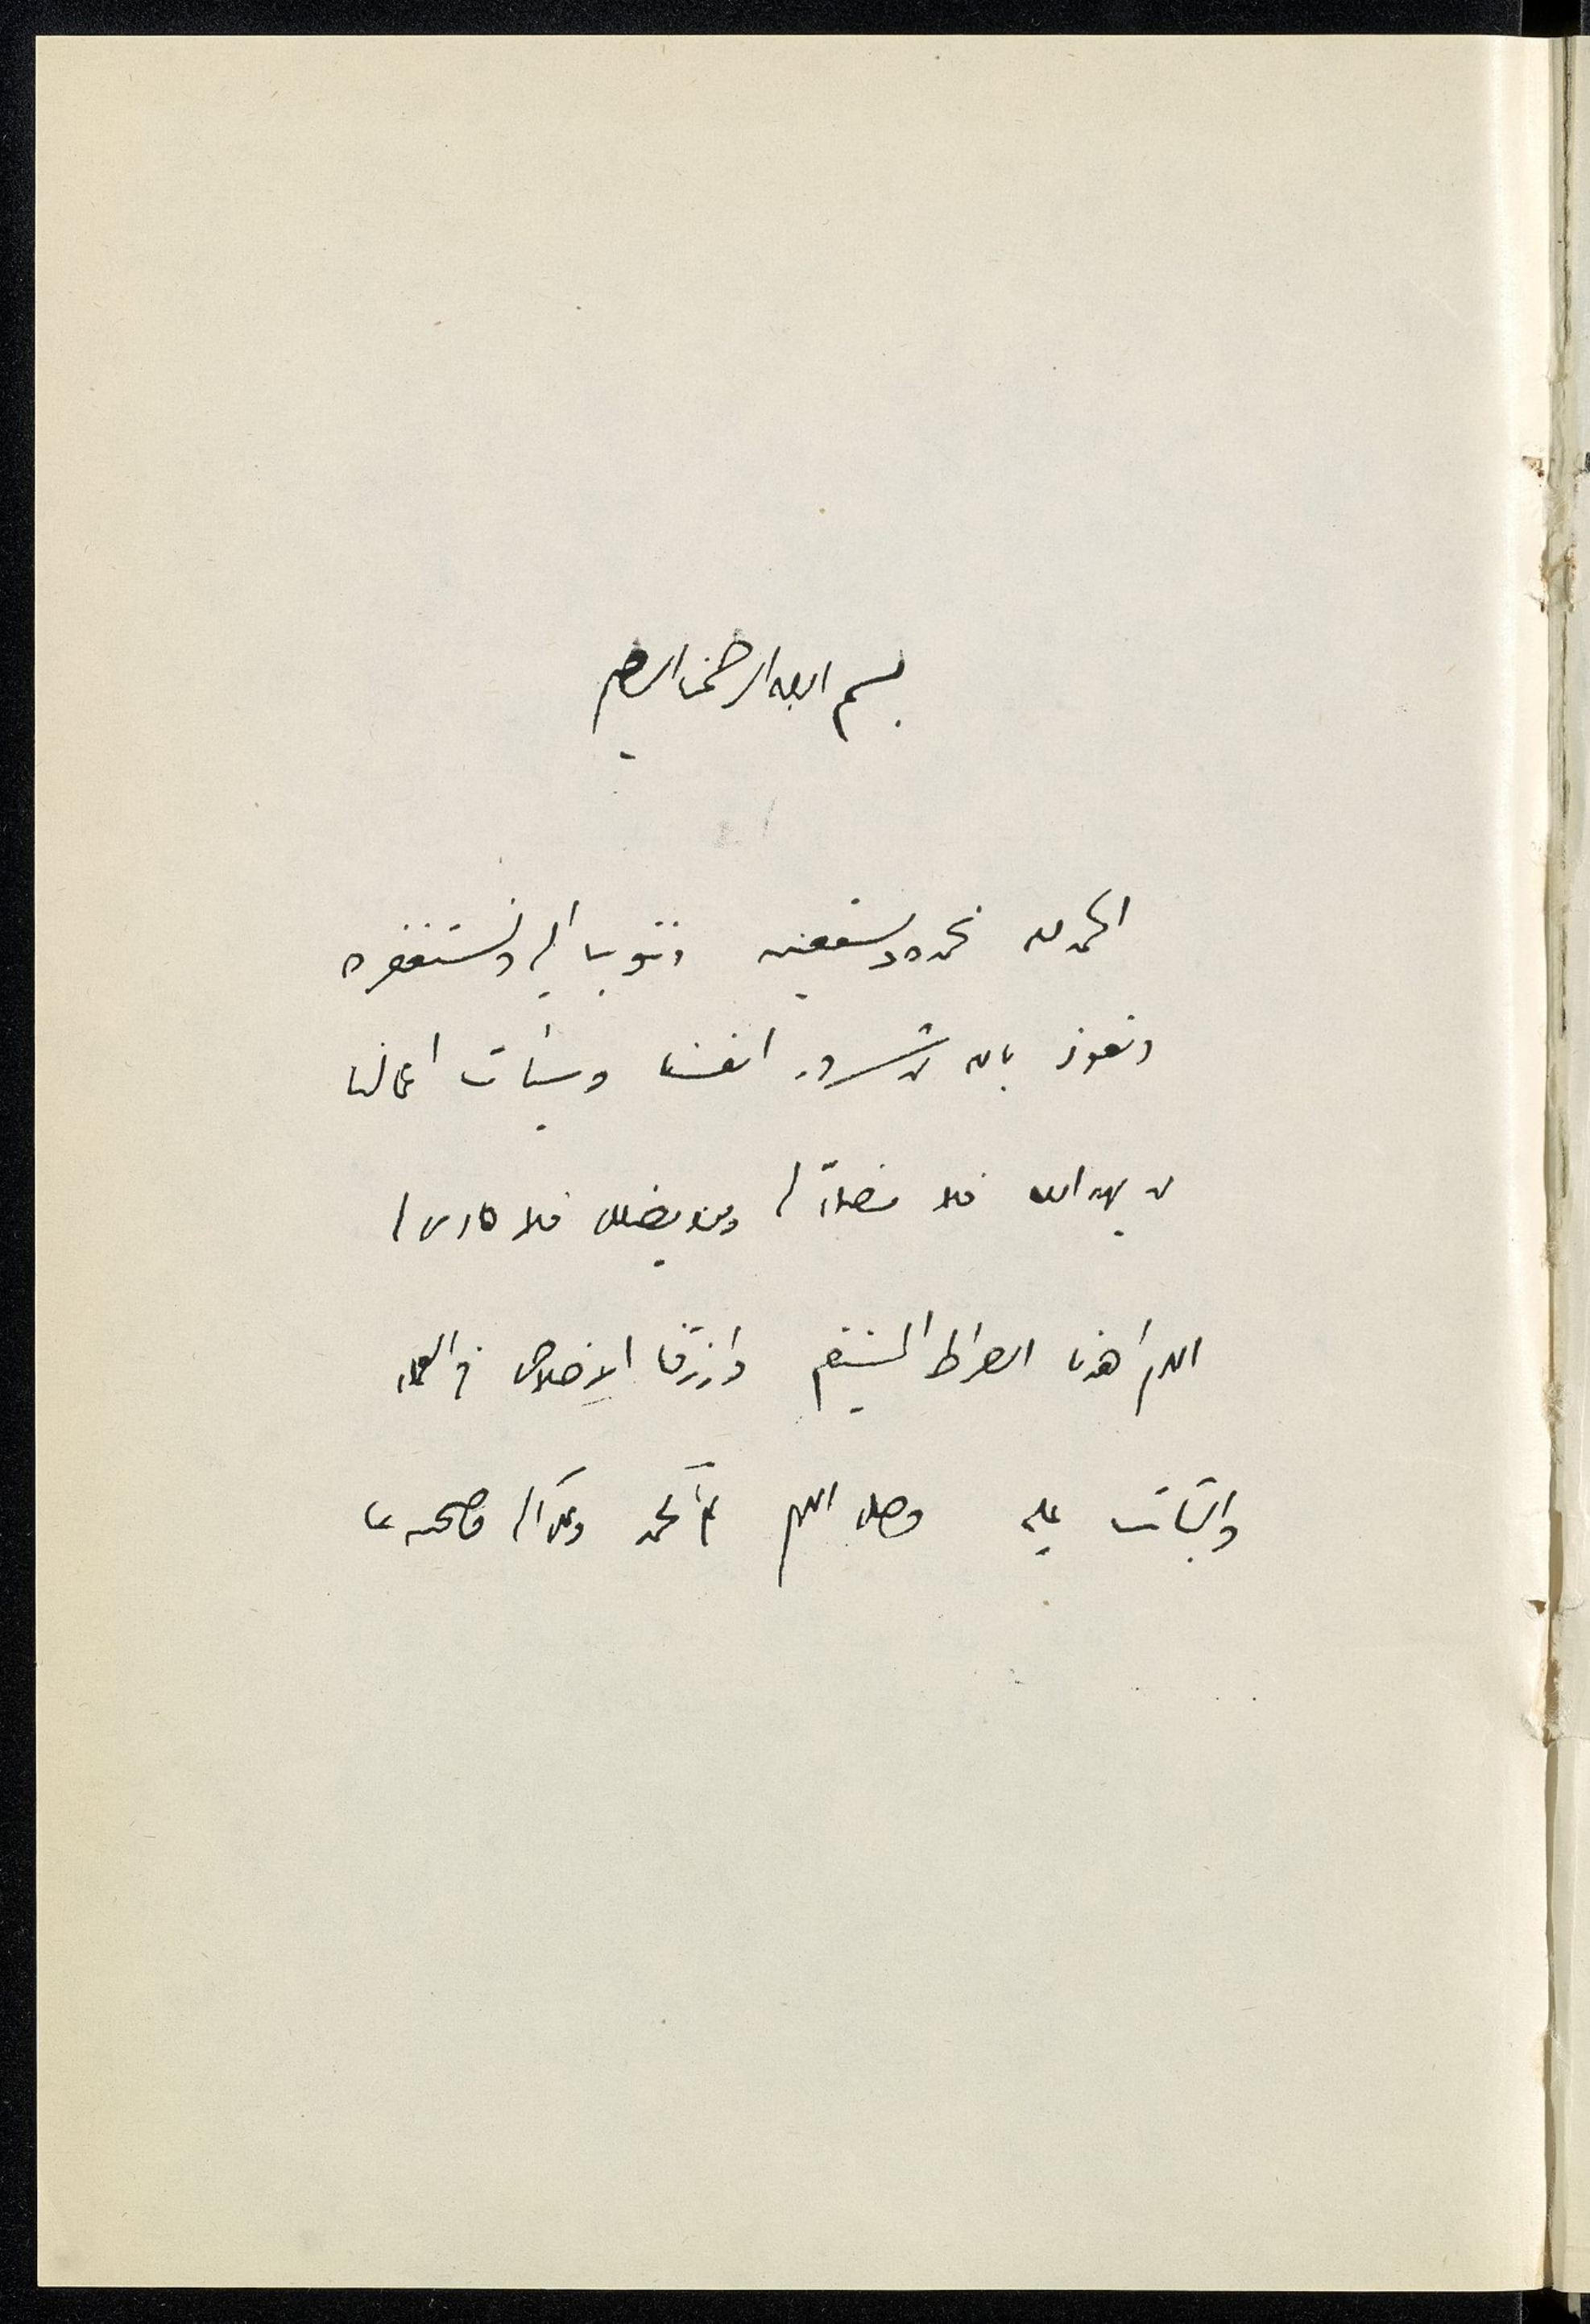 بسم الله الرحمن الرحيم
الحمد لله نحمده ونستعينه ونتوب اليه ونستغفره
ونعوذ بالله من شرور انفسنا وسيئات اعمالنا
من يهد الله فلا مضل له ومن يضلل فلا هادي له
اللهم اهدنا الصراط المستقيم وارزقنا الإخلاص في العمل
والثبات عليه وصل اللهم على محمد وعلى آله وصحبه